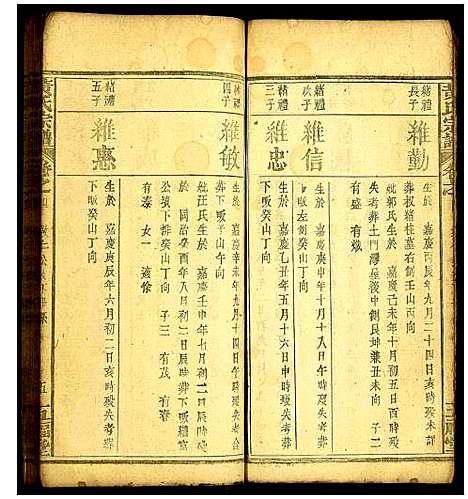 黃氏宗譜
緒禮長子
維勤
生於 嘉慶丙辰年九月二十四日亥時歿失詳
葬叔緒桂墓右側壬山丙向
妣郭氏生於 嘉慶己未年十月初五日酉時歿
失考葬土門灣屋後中側艮坤兼丑未向 子二
有盛 有
緒禮次子
維信
生於 嘉慶庚申年十月十一日亥時歿失考葬
下畈左側癸山丁向
緒禮三子
維忠
生於 嘉慶乙丑年五月十六日申時歿失考葬
下畈癸山丁向
緒禮四子
維敏
生於 嘉慶辛未年九月初二日辰時歿失考
葬下畈癸山丁向
妣汪氏生於 嘉慶壬申年十月初二日亥時歿
於 同治癸酉年八月初三日辰時歿葬下畈緒富
公墳下排癸山丁向 子三 有茂 有春
有泰 女一 適徐
緒禮五子
維惠
生於 嘉慶庚辰年六月初二日亥時歿失考葬
下畈癸山丁向
黃氏宗譜